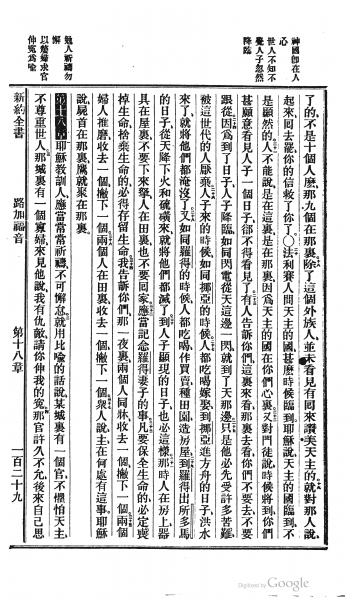 神國即在人
心
世人不知不
覺人子忽然
降臨
勉人祈禱勿
懈
以嫠婦求官
伸寃爲喻
了的、不是十個人麽那九個在那裏除了這個外族人並未看見有回來讚美天主的就對那人說
起來回去罷你的信救了你了○法利賽人問天主的國甚麽時候臨到耶穌說天主的國臨到不
是顯然的人不能說是在這裏是在那裏因爲天主的國在你們心裏又對門徒說時候將到你們
甚願意看見人子一個日子卻不得看見了有人告訴你們這裏來看那裏去看你們不要去不要
跟從因爲到了日子人子降臨如同閃電從天這邊一閃就到了天那邊只是他必先受許多苦難
被這世代的人厭棄人子來的時候如同挪亞的時候人都吃喝嫁娶到挪亞進方舟的日子洪水
來了就將他們都淹沒了又如同羅得的時候人都吃喝作買賣種田園造房屋到羅得出所多馬
的日子從天降下火和硫磺來就將他們都滅了到人子顯現的日子也必這樣那時人在房上器
具在屋裏不要下來拏人在田裏也不要回家應當記念羅得妻子的事凡要保全生命的必定喪
掉生命捨棄生命的必得存留生命我告訴你們那一夜裏兩個人同牀收去一個撇下一個兩個
婦人推磨收去一個撇下一個兩個人在田裏收去一個撇下一個衆人說主在何處有這事耶穌
說屍首在那裏鷹就聚在那裏
第十八章 耶穌教訓人應當常常祈禱不可懈怠就用比喻的話說某城裏有一個官不懼怕天主
不尊重世人那城裏有一個寡婦來見他說我有仇敵請你伸我的寃那官許久不允後來自己思
新約全書 路加福音 第十八章 一百二十九
Digitized by Google